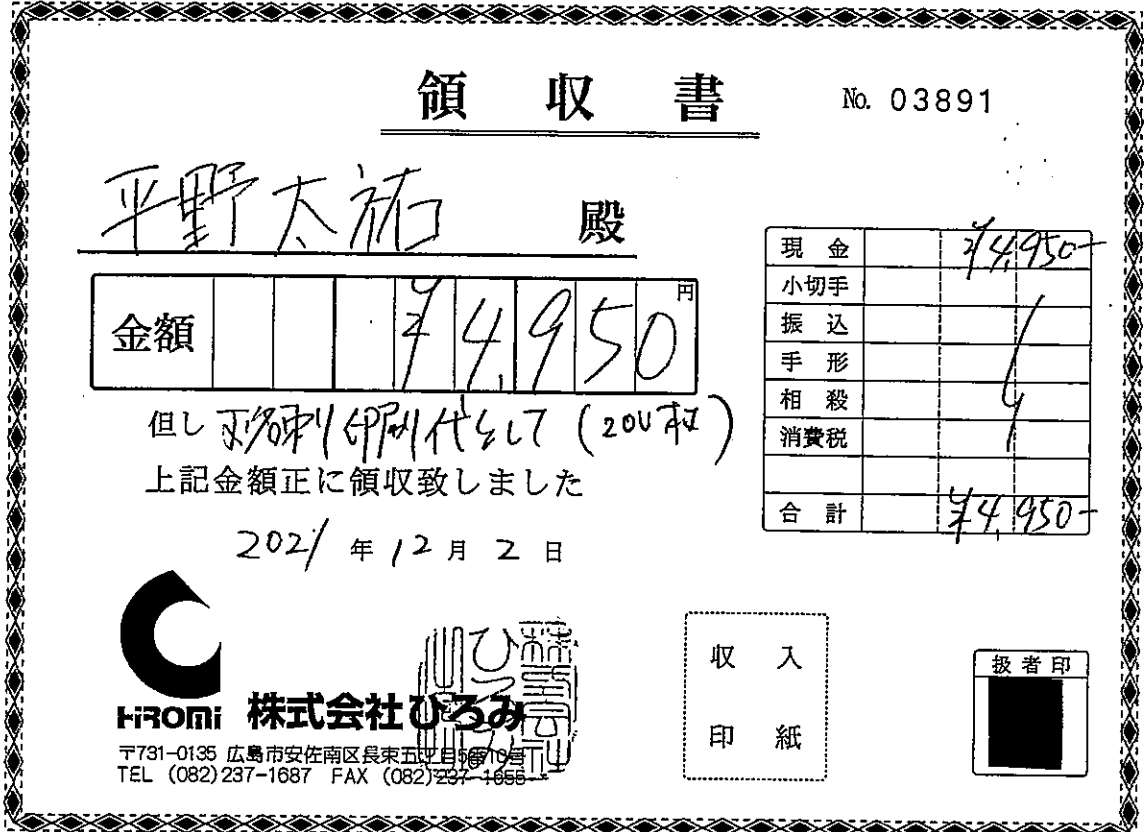 領収書
No. 03891
平野太祐 殿
金額 ¥4,950 円
但し 名刺印刷代として (200枚)
上記金額正に領収致しました
2021年12月2日
現金 ¥4,950-
小切手
振込
手形
相殺
消費税
合計 ¥4,950-
収入
印紙
扱者印
HiROMi 株式会社ひろみ
〒731-0135 広島市安佐南区長束五丁目5番10号
TEL (082)237-1687 FAX (082)237-1655